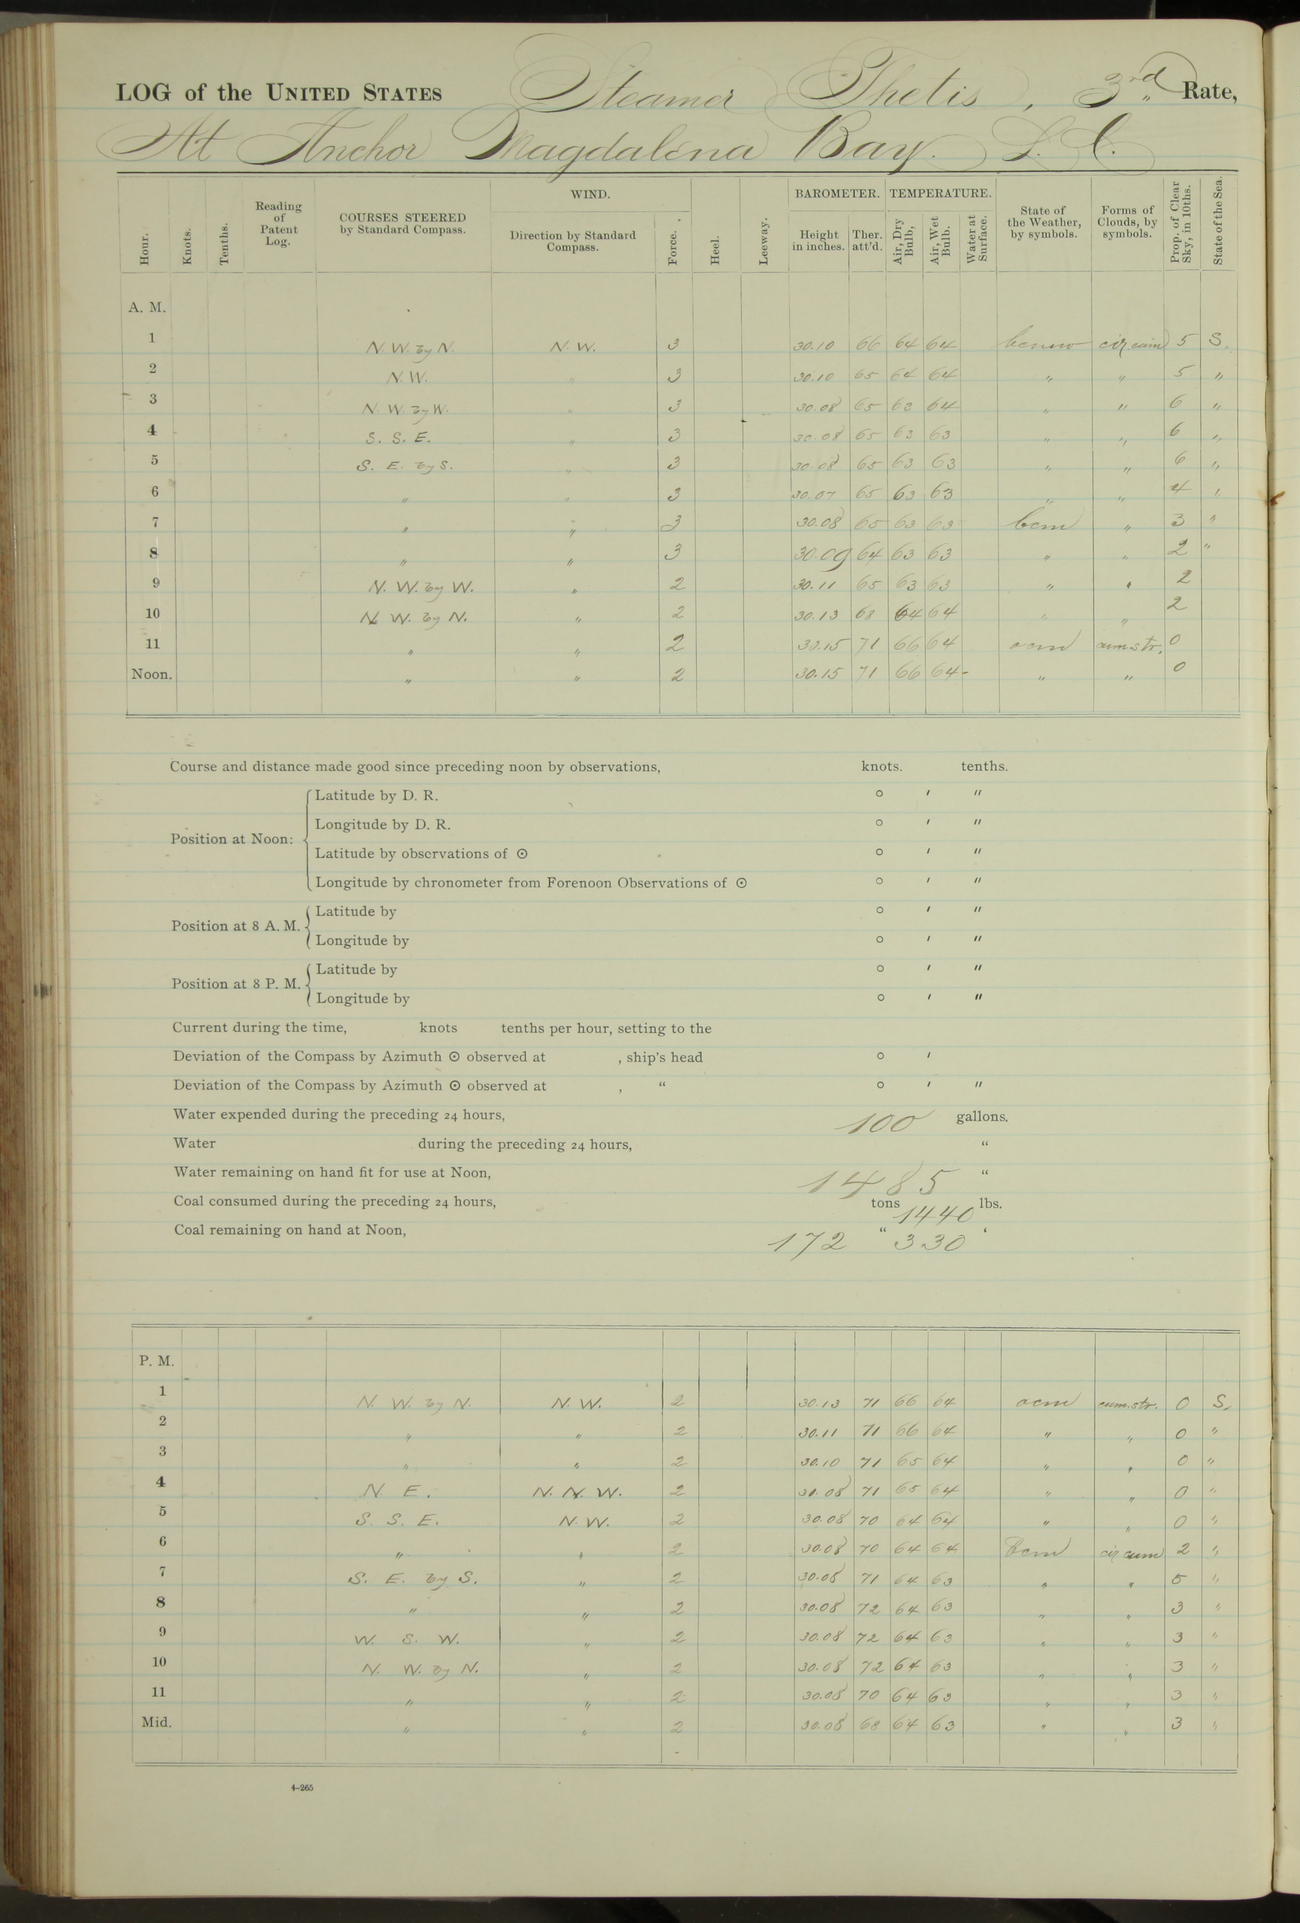 LOG of the UNITED STATES Steamer Thetis, 3rd Rate,
At Anchor Magdalena Bay. L. C.
Hour. Knots. Tenths. Reading of Patent Log. COURSES STEERED by Standard Compass. WIND. Direction by Standard Compass. Force. Heel. Leeway. BAROMETER. Height in inches. Ther. att'd. TEMPERATURE. Air, Dry Bulb, Air, Wet Bulb. Water at Surface. State of the Weather, by symbols. Forms of Clouds, by symbols. Prop. of Clear Sky, in 10ths. State of the Sea.
A. M.
1 N. W. by N. N. W. 3 30.10 66 64 64 cir cum 5 S.
2 N. W. " 3 30.10 65 64 64 " " 5 "
3 N. W. by W. " 3 30.08 65 63 64 " " 6 "
4 S. S. E. " 3 30.08 65 63 63 " " 6 "
5 S. E. by S. " 3 30.08 65 63 63 " " 6 "
6 " " 3 30.07 65 63 63 " " 4 "
7 " " 3 30.08 65 63 63 bcm " 3 "
8 " " 3 30.09 64 63 63 " " 2 "
9 N. W. by W. " 2 30.11 65 63 63 " " 2
10 N. W. by N. " 2 30.13 68 64 64 " " 2
11 " " 2 30.15 71 66 64 ocm cum str. 0
Noon. " " 2 30.15 71 66 64 " " 0
Course and distance made good since preceding noon by observations, knots. tenths.
Position at Noon: Latitude by D. R. ° ′ ″
Longitude by D. R. ° ′ ″
Latitude by observations of ☉ ° ′ ″
Longitude by chronometer from Forenoon Observations of ☉ ° ′ ″
Position at 8 A. M. Latitude by ° ′ ″
Longitude by ° ′ ″
Position at 8 P. M. Latitude by ° ′ ″
Longitude by ° ′ ″
Current during the time, knots tenths per hour, setting to the
Deviation of the Compass by Azimuth ☉ observed at , ship's head ° ′
Deviation of the Compass by Azimuth ☉ observed at , " ° ′ ″
Water expended during the preceding 24 hours, 100 gallons.
Water during the preceding 24 hours, "
Water remaining on hand fit for use at Noon, 1485 "
Coal consumed during the preceding 24 hours, tons 1440 lbs.
Coal remaining on hand at Noon, 172 " 330 "
P. M.
1 N. W. by N. N. W. 2 30.13 71 66 64 ocm cum. str. 0 S.
2 " " 2 30.11 71 66 64 " " 0 "
3 " " 2 30.10 71 65 64 " " 0 "
4 N. E. N. N. W. 2 30.08 71 65 64 " " 0 "
5 S. S. E. N. W. 2 30.08 70 64 64 " " 0 "
6 " " 2 30.08 70 64 64 bcm cir cum 2 "
7 S. E. by S. " 2 30.08 71 64 63 " " 5 "
8 " " 2 30.08 72 64 63 " " 3 "
9 W. S. W. " 2 30.08 72 64 63 " " 3 "
10 N. W. by N. " 2 30.08 72 64 63 " " 3 "
11 " " 2 30.08 70 64 63 " " 3 "
Mid. " " 2 30.08 68 64 63 " " 3 "
4-265